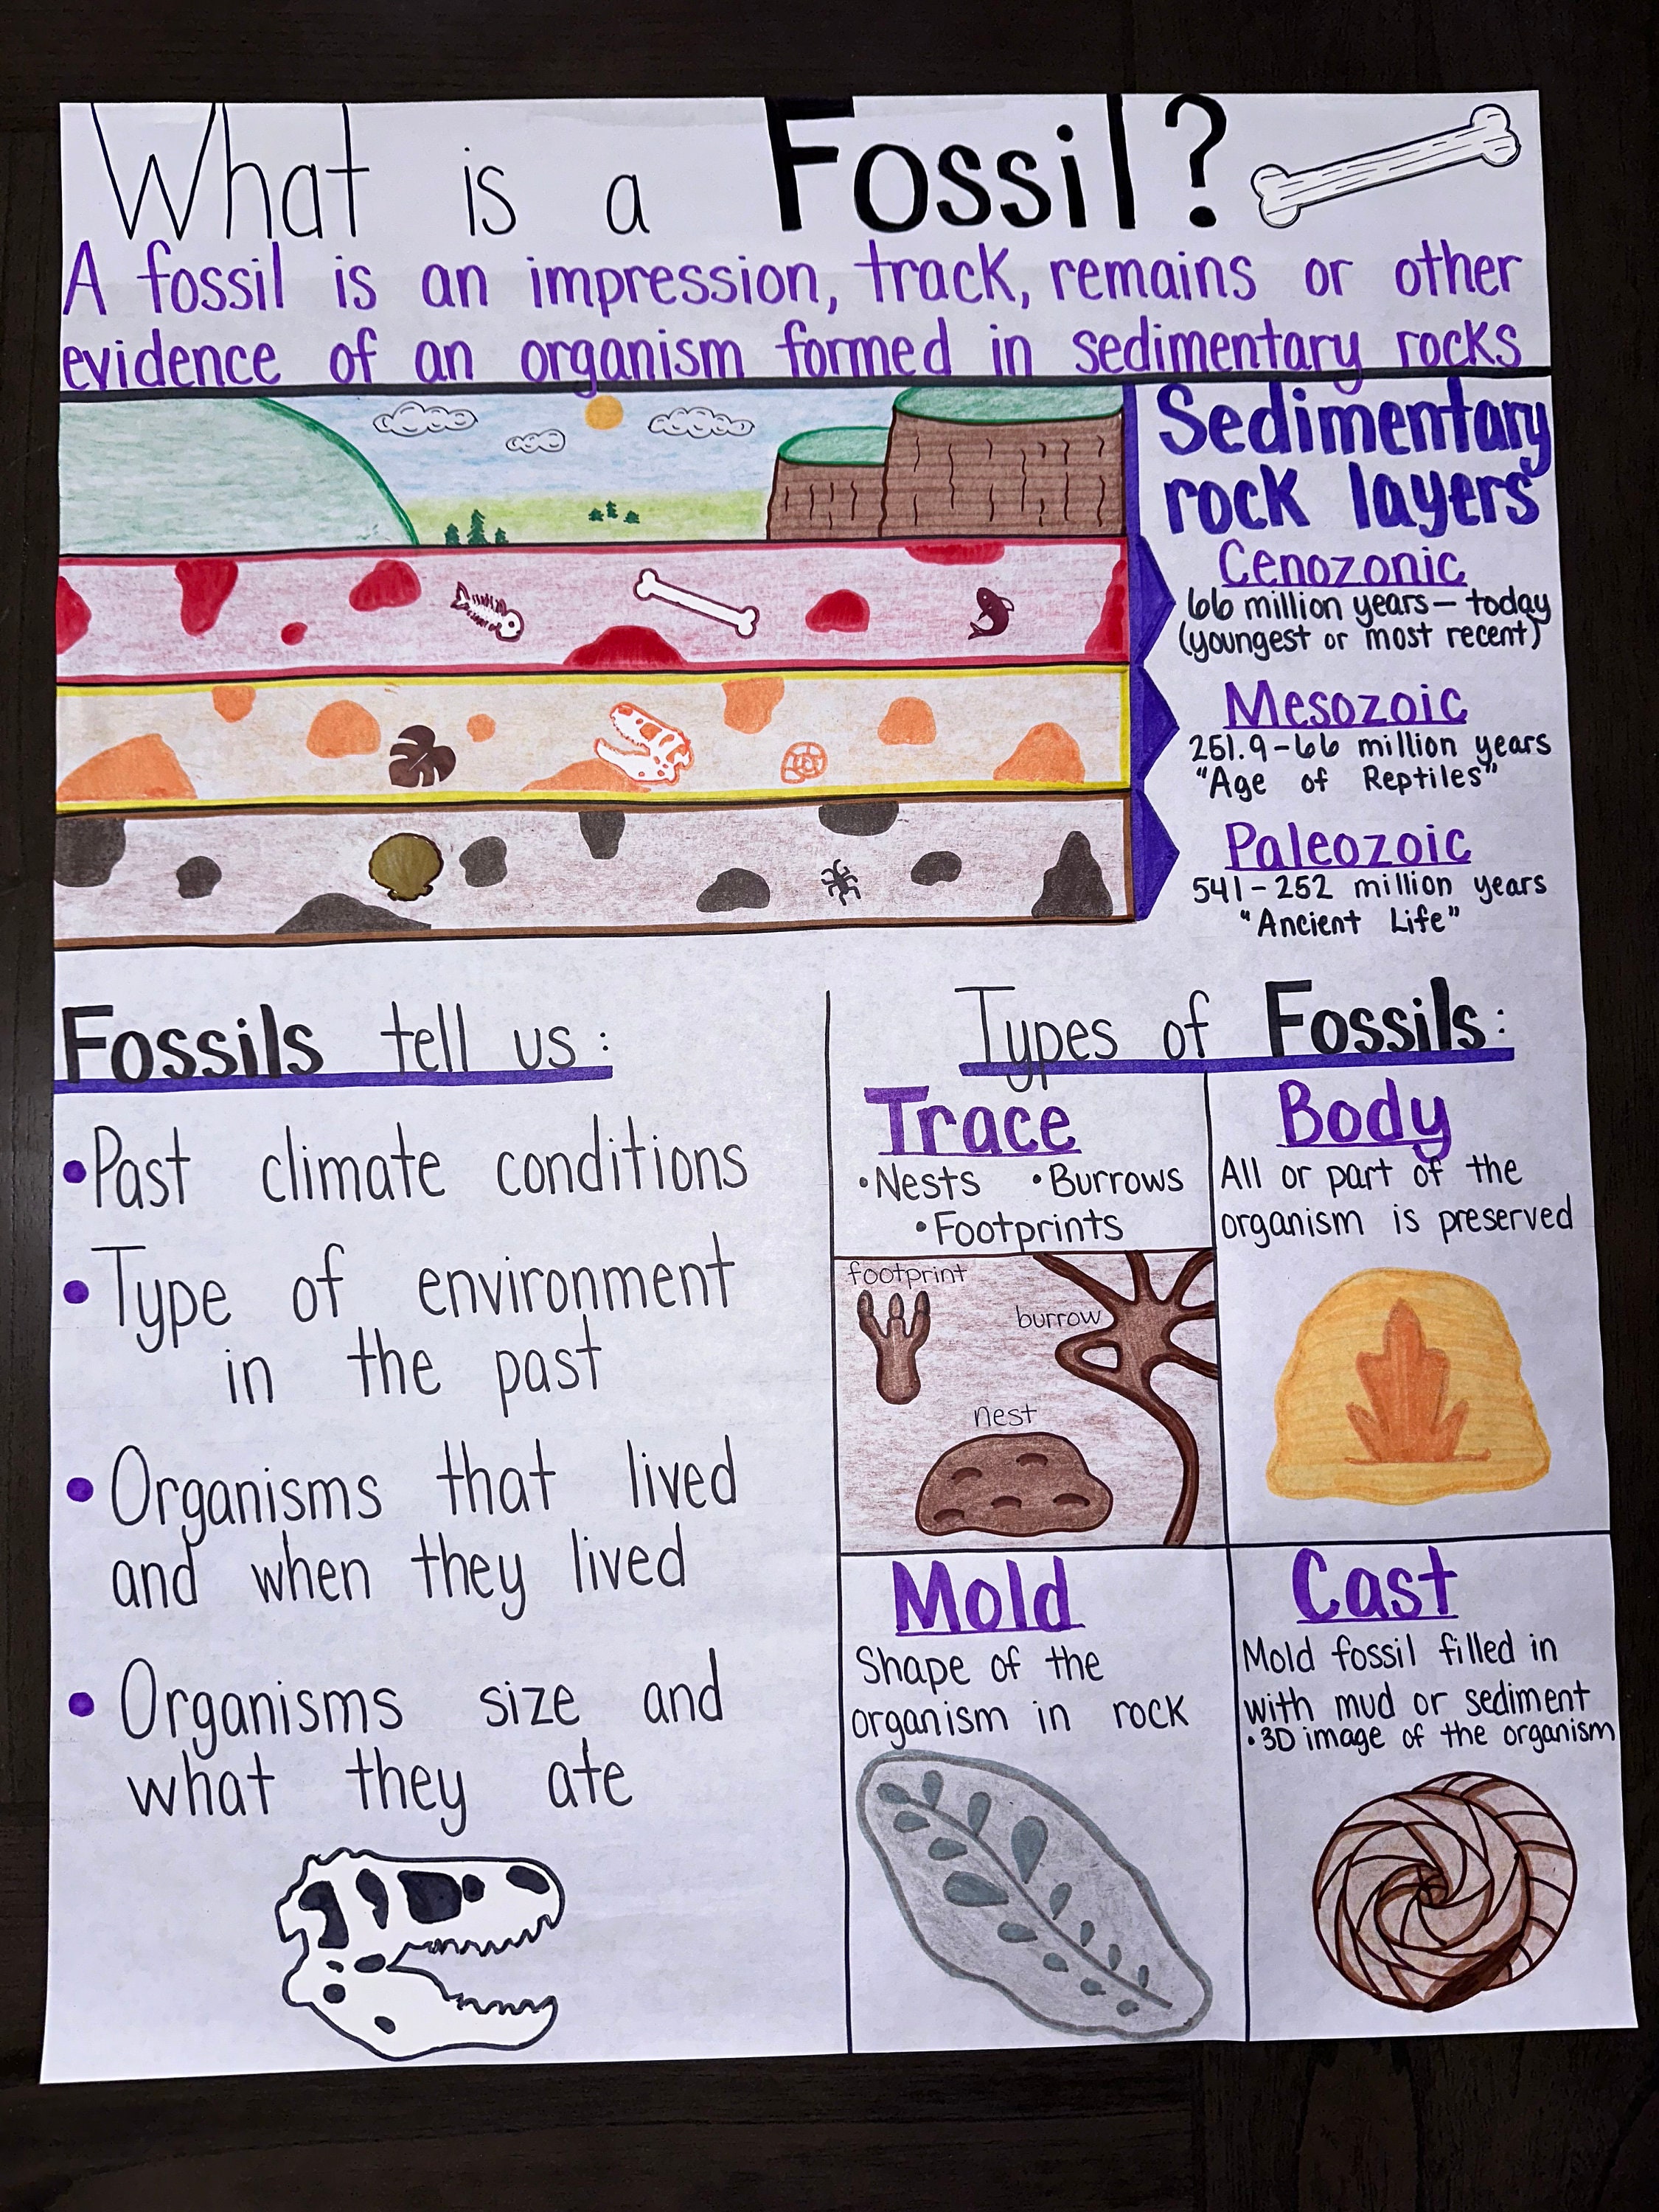 What is a Fossil?
A fossil is an impression, track, remains or other
evidence of an organism formed in sedimentary rocks
Sedimentary
rock layers
Cenozonic
66 million years – today
(youngest or most recent)
Mesozoic
251.9 – 66 million years
"Age of Reptiles"
Paleozoic
541 – 252 million years
"Ancient Life"
Fossils tell us:
• Past climate conditions
• Type of environment
in the past
• Organisms that lived
and when they lived
• Organisms size and
what they ate
Types of Fossils:
Trace
• Nests • Burrows
• Footprints
footprint
burrow
nest
Body
All or part of the
organism is preserved
Mold
Shape of the
organism in rock
Cast
Mold fossil filled in
with mud or sediment
• 3D image of the organism